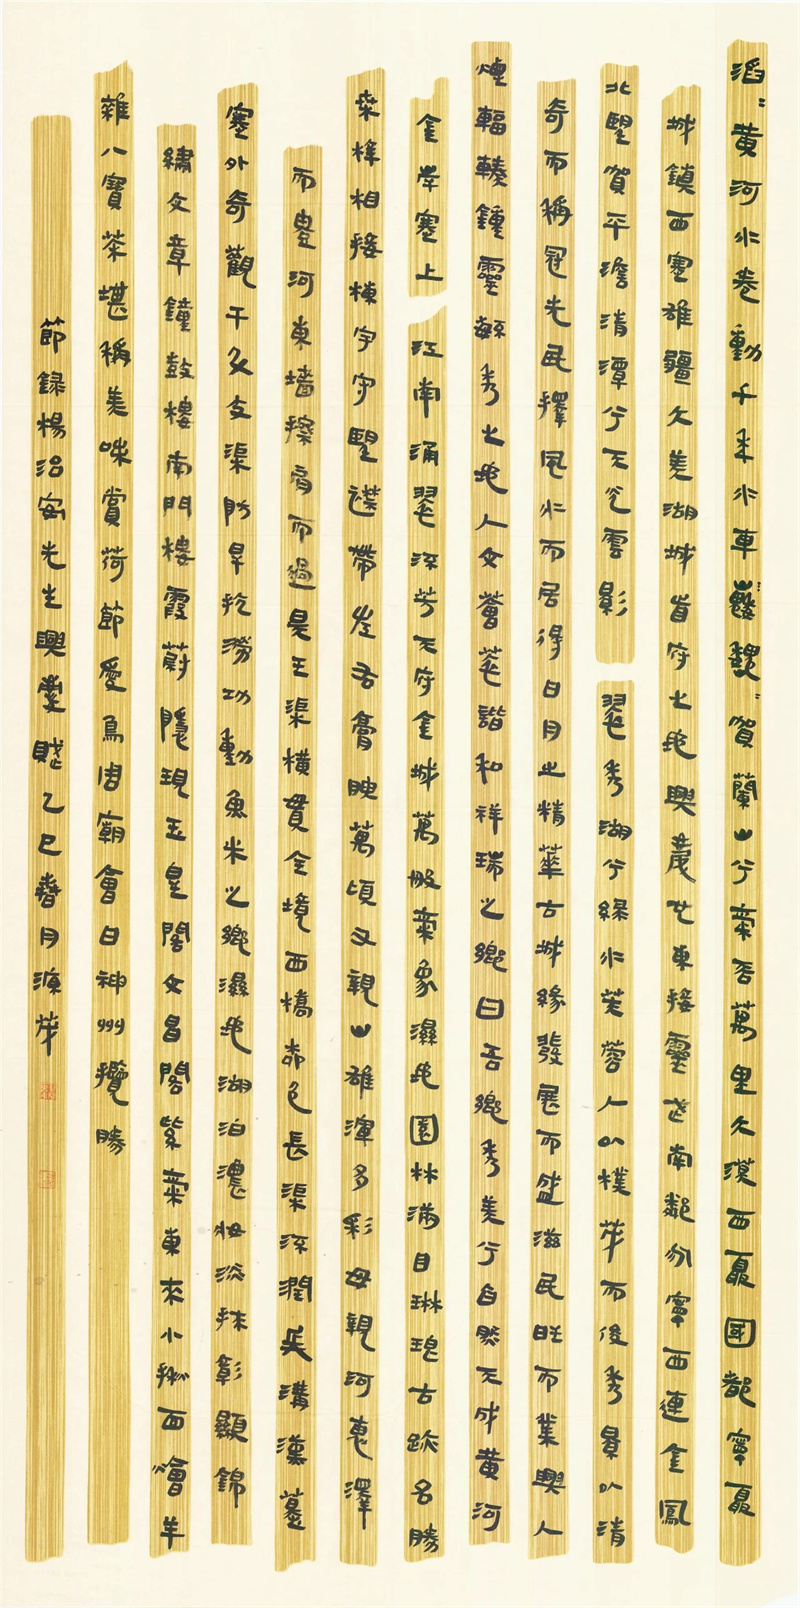 滔〻黄河水卷動千年水車巍〻賀蘭山兮氣吞萬里大漠西夏國都寧夏
城鎮西塞雄疆大美湖城首府之地興慶也東接靈武南鄰永寧西連金鳳
北望賀平澹清潭兮天光雲影翠秀湖兮綠水芙蓉人以樸茂而後秀景以清
奇而稱冠先民擇風水而居得日月之精華古城緣發展而盛滋民旺而業興人
煙輻輳鍾靈毓秀之地人文薈萃諧和祥瑞之鄉曰吾鄉秀美兮自然天成黄河
金岸塞上江南涌翠流芳天府金城萬般氣象濕地園林滿目琳琅古跡名勝
桑梓相接棟宇守望襟帶左右膏腴萬頃父親山雄渾多彩母親河惠澤
而豐河東墻擦肩而過昊王渠橫貫全境西橋赤色長渠流潤吴溝漢墓
塞外奇觀干久支渠防旱抗澇功勳魚米之鄉濕地湖泊濃妝淡抹彰顯錦
繡文章鐘鼓樓南門樓霞蔚隱現玉皇閣文昌閣紫氣東來小酥面燴羊
雜八寶茶堪稱美味賞荷節愛鳥周廟會日神州攬勝
節録楊治安先生興慶賦乙巳春月源茂